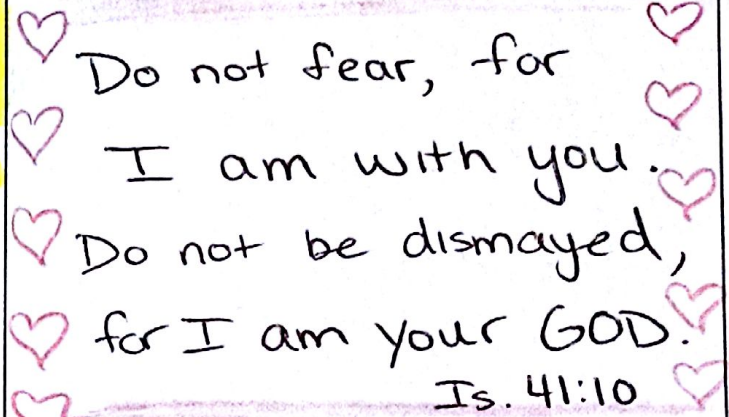 Do not fear, for
I am with you.
Do not be dismayed,
for I am your GOD.
Is. 41:10